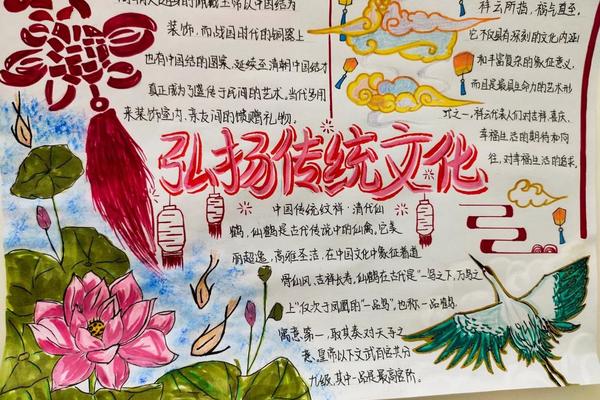 装饰,而战国时代的铜器上
也有中国结的图案,延续至清朝中国结才
真正成为了流传于民间的艺术,当代多用
来装饰室内、亲友间的馈赠礼物。
祥云所指,福气直至,
它不仅有深刻的文化内涵
和丰富复杂的象征意义,
而且是最具生命力的艺术形
式之一,祥云代表人们对吉祥、喜庆、
幸福生活的期待和向
往,对幸福生活的追求。
弘扬传统文化
中国传统纹祥·清代仙
鹤,仙鹤是古代传说中的仙禽,它美
丽超逸,高雅圣洁,在中国文化中象征着道
骨仙风,吉祥长寿,仙鹤在古代是“一鸟之下,万鸟之
上”仅次于凤凰的“一品鸟”,也称一品
寓意第一,取其奏对天子之
意,皇帝以下文武百官共分
九级,其中一品是最高官阶。